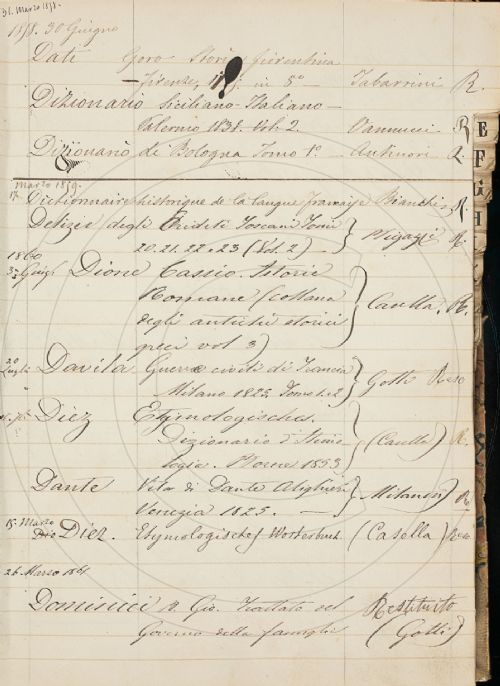 31. Marzo 1858.
1858. 30 Giugno
Dati Goro Storia fiorentina
Firenze, in 8° — Tabarrini R.
Dizionario Siciliano-Italiano —
Palermo 1838. Vol. 2. Vannucci R
Dizionario di Bologna Tomo 1°. — Antinori R.
Marzo 1859.
17. Dictionnaire historique de la langue française Bianchi R.
Delizie degli Eruditi Toscani Tomi
20. 21. 22 e 23 (Vol. 2) — R.
1860
Dione Cassio. Istorie
Romane (collana
degli antichi storici
greci vol 3) Casella. R.
20
Luglio Davila Guerre civili di Francia
Milano 1825 Tomo 1. e 2 Gotti Reso
Diez Etymologisches.
Dizionario d'Etimo
logia. 1853 (Casella) R.
Dante Vita di Dante Alighieri
Venezia 1825. — Milanesi R
15. Marzo
Diez. Etymologisches Worterbuch (Casella) Reso
26. Marzo 1861
Dominici B. Gio. Trattato del Restituito
Governo della famiglia (Gotti)
E
F
G
H